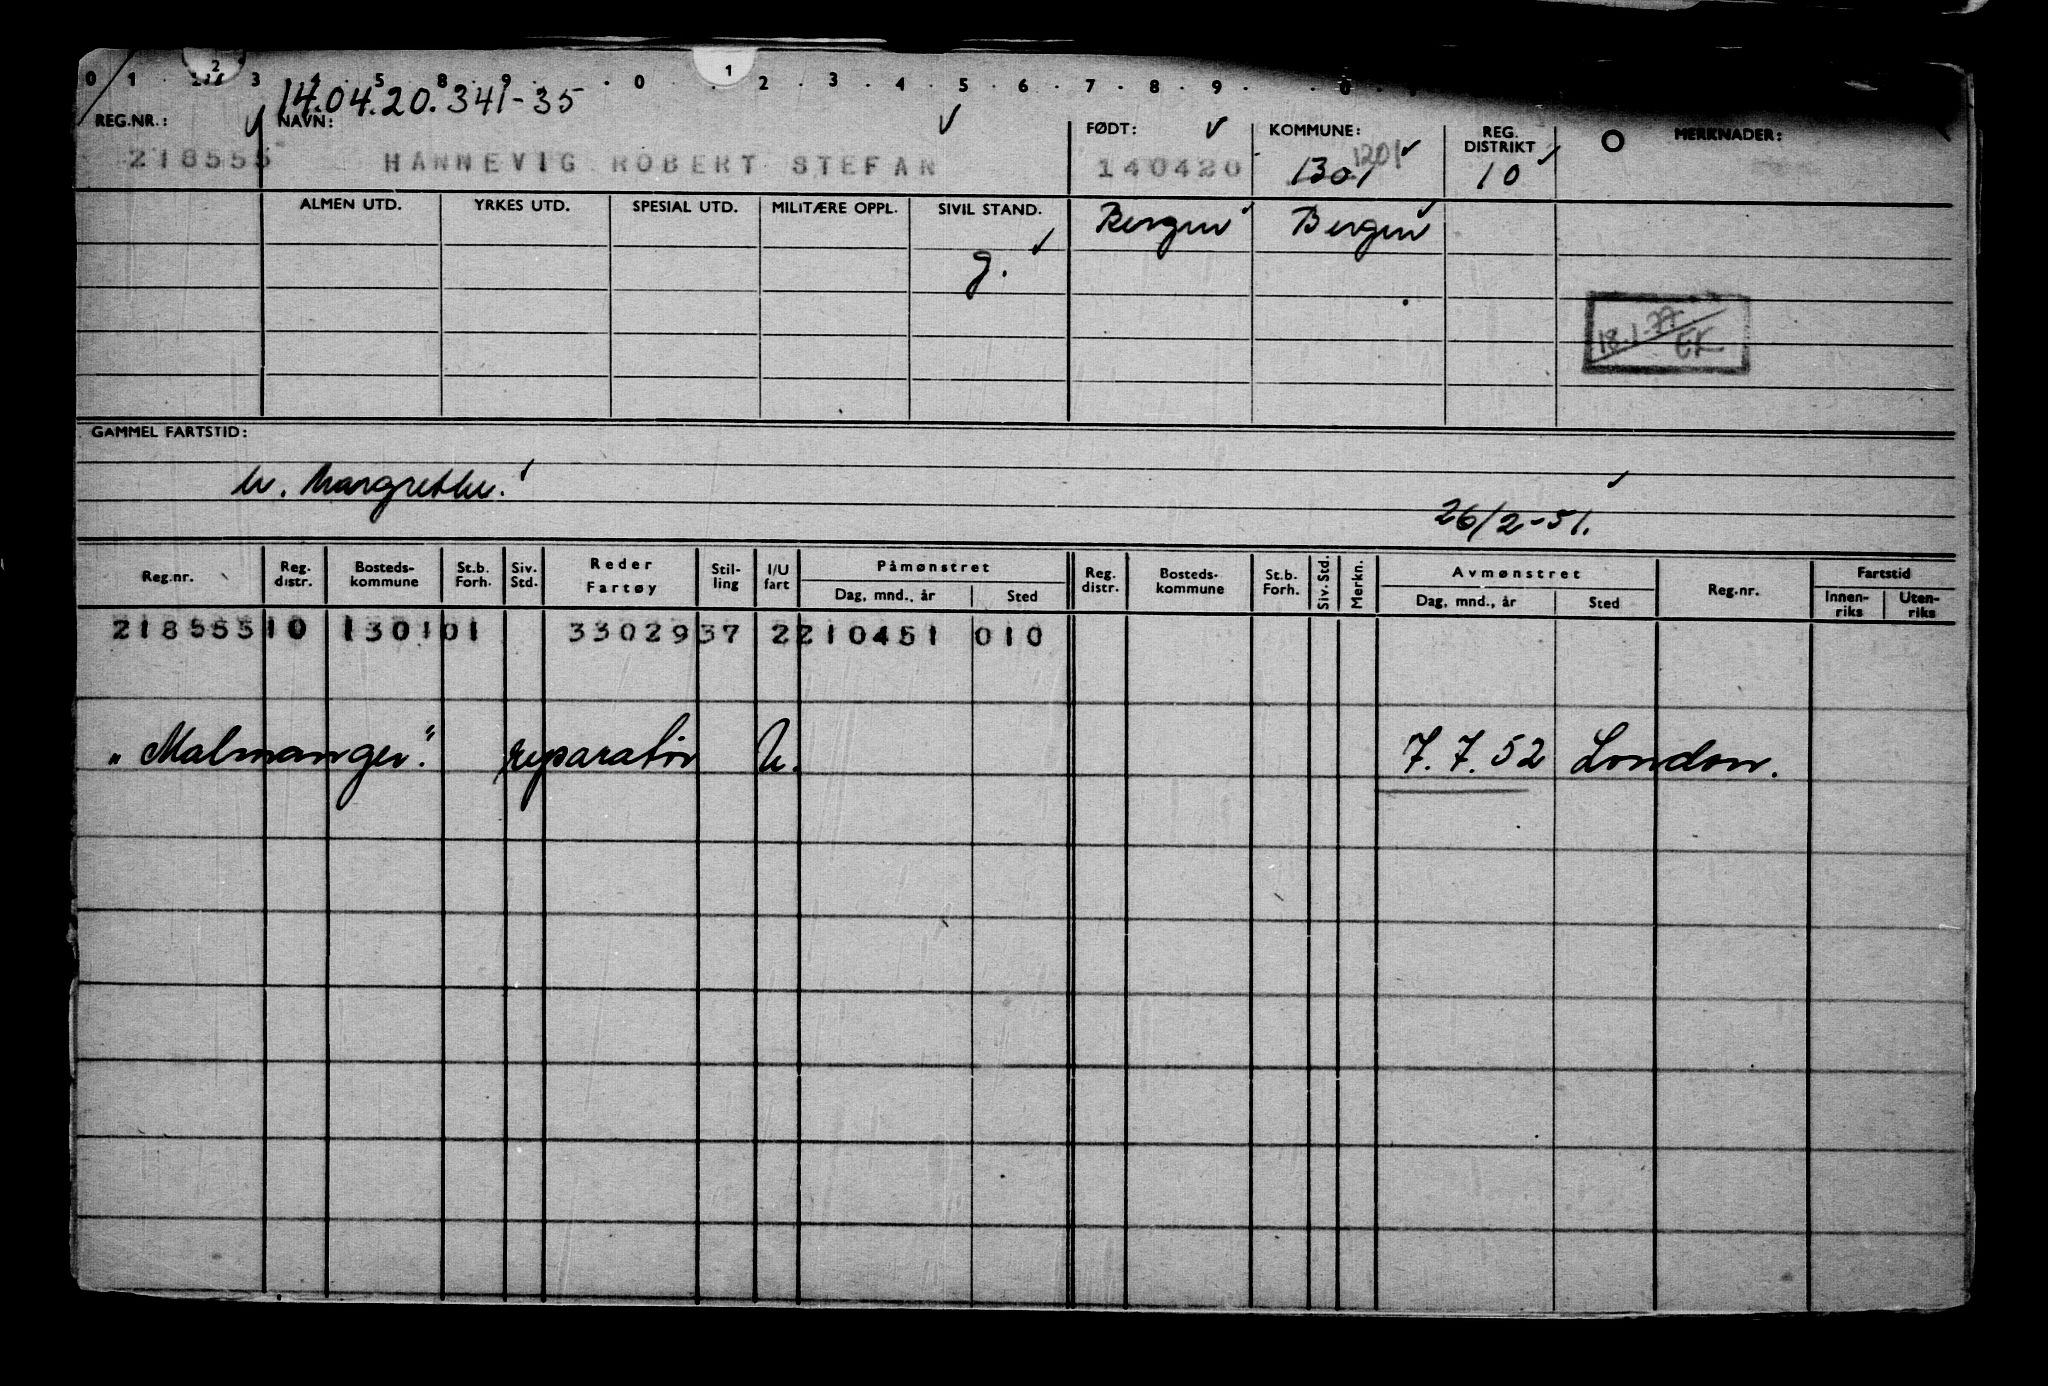 0 1 2 3 4 5 8 9 . 0 . 1 2 . 3 . 4 . 5 . 6 . 7 . 8 . 9 . . 0
14.04.20.341-35
REG.NR.: NAVN: FØDT: KOMMUNE: REG. DISTRIKT MERKNADER:
218555 HANNEVIG ROBERT STEFAN 140420 1301 1201 10
ALMEN UTD. YRKES UTD. SPESIAL UTD. MILITÆRE OPPL. SIVIL STAND. Bergen Bergen
g.
18.1.77 EK
GAMMEL FARTSTID:
h. Margrethe.
26/2-51.
Reg.nr. Reg. distr. Bosteds-kommune St.b. Forh. Siv. Std. Reder Fartøy Stil-ling I/U fart Påmønstret Dag, mnd., år Sted Reg. distr. Bosteds-kommune St.b. Forh. Siv. Std. Merkn. Avmønstret Dag, mnd., år Sted Reg.nr. Fartstid Innen-riks Uten-riks
218555 10 1301 01 33029 37 2 210451 010
„Malmanger." reparatør U. 7.7.52 London.